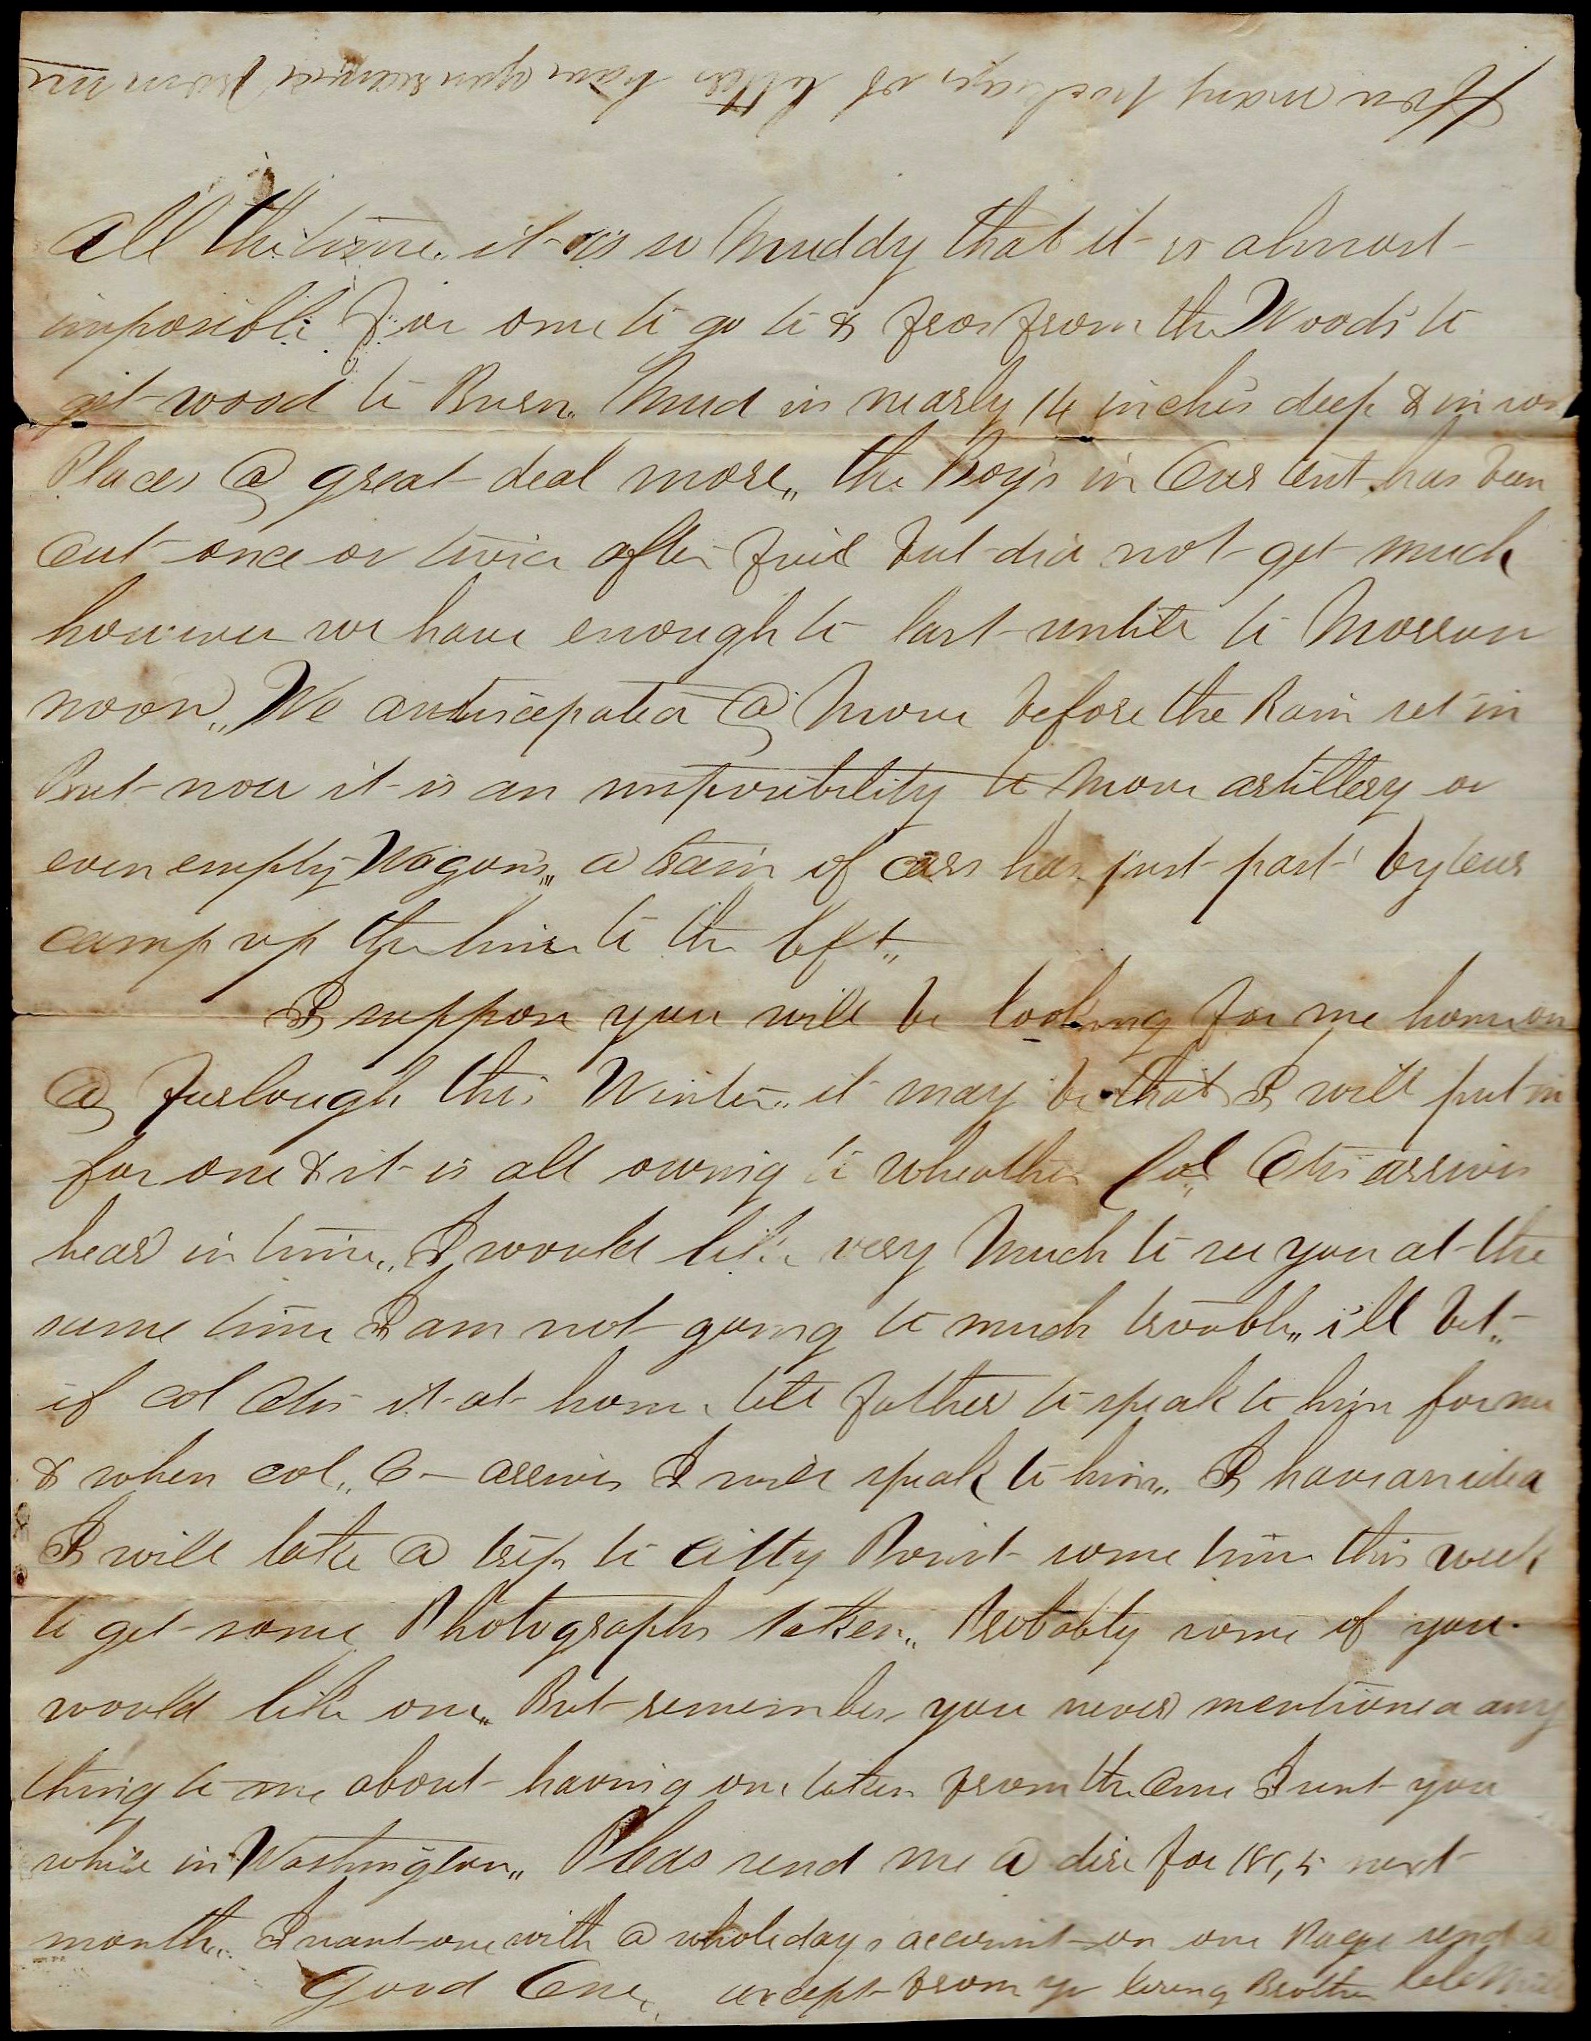 How many packages of letters have you received from me
all the time. it is so Muddy that it is almost
imposible for one to go to & fro from the Woods to
get wood to Burn. Mud in nearly 14 inches deep & in som
Places @ great deal more,, the Boy's in Our tent has been
Out once or twice after fuil but did not get much
however we have enough to last untill to Morrow
noon,, We anticepated @ Move before the Rain set in
But now it is an imposibility to Move artillery or
even empty Wagons,, a train of cars has just past by our
camp up the line to the left,,
I suppose you will be looking for me home on
@ furlough this Winter,, it may be that I will put in
for one & it is all owing to wheather Col Otis arrives
hear in time,, I would like very Much to see you at the
same time I am not going to much trouble,, i'll bet,,
if col Otis it at home tell father to speak to him for me
& when col,, O— arrives I will speak to him,, I have an idea
I will take @ trip to Citty Point some time this week
to get some Photographs taken,, Probably some of you
would like one,, But remember you never mentioned any
thing to me about having one taken from the One I sent you
while in Washington,, Pleas send me @ for 1865 next
month,, I want one with @ whole days account on one Page send a
Good One,, except from yr loving Brother